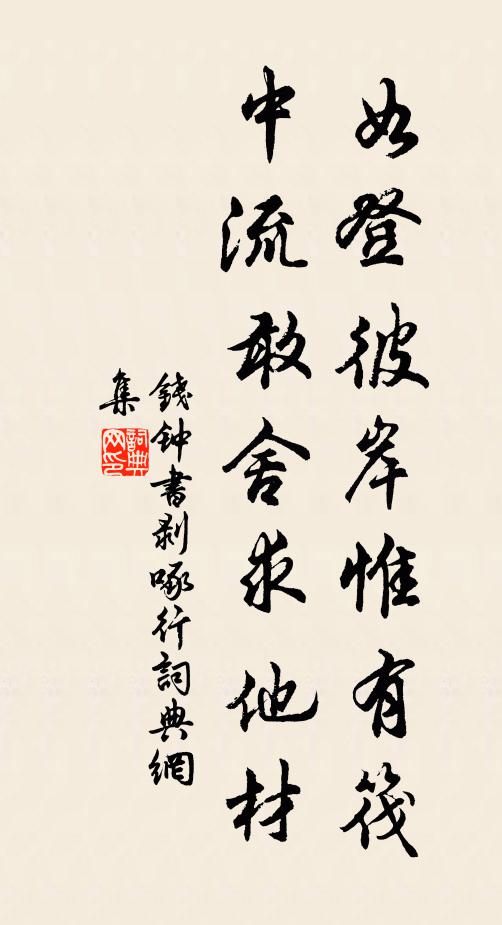 如登彼岸惟有筏
中流敢舍求他材
錢钟書剝啄行詞典網
集
詞典
网印